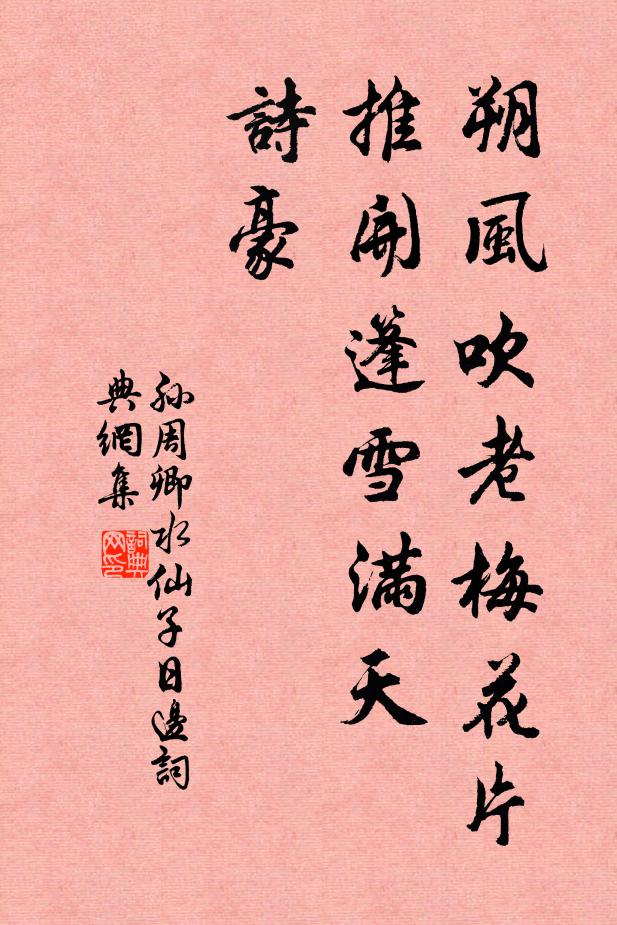 朔風吹老梅花片
推開篷雪滿天
詩豪
孫周卿水仙子日邊詞
典網集
詞典
网印